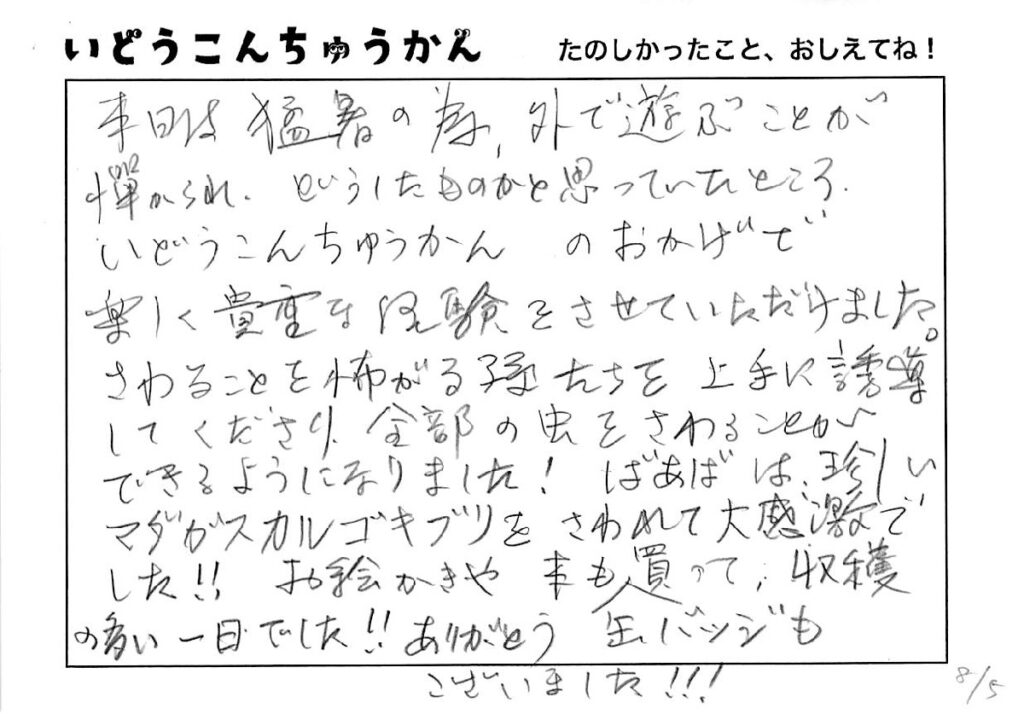 いどうこんちゅうかん たのしかったこと、おしえてね！
本日は猛暑の為、外で遊ぶことが
憚かられ、どうしたものかと思っていたところ、
いどうこんちゅうかん のおかげで
楽しく貴重な経験をさせていただけました。
さわることを怖がる孫たちを上手に誘導
してくださり、全部の虫をさわることが
できるようになりました！ ばあばは、珍しい
マダガスカルゴキブリをさわれて大感激で
した!! お絵かきや 本も買って、収穫
缶バッジも
の多い一日でした!! ありがとう
ございました!!!
8/5